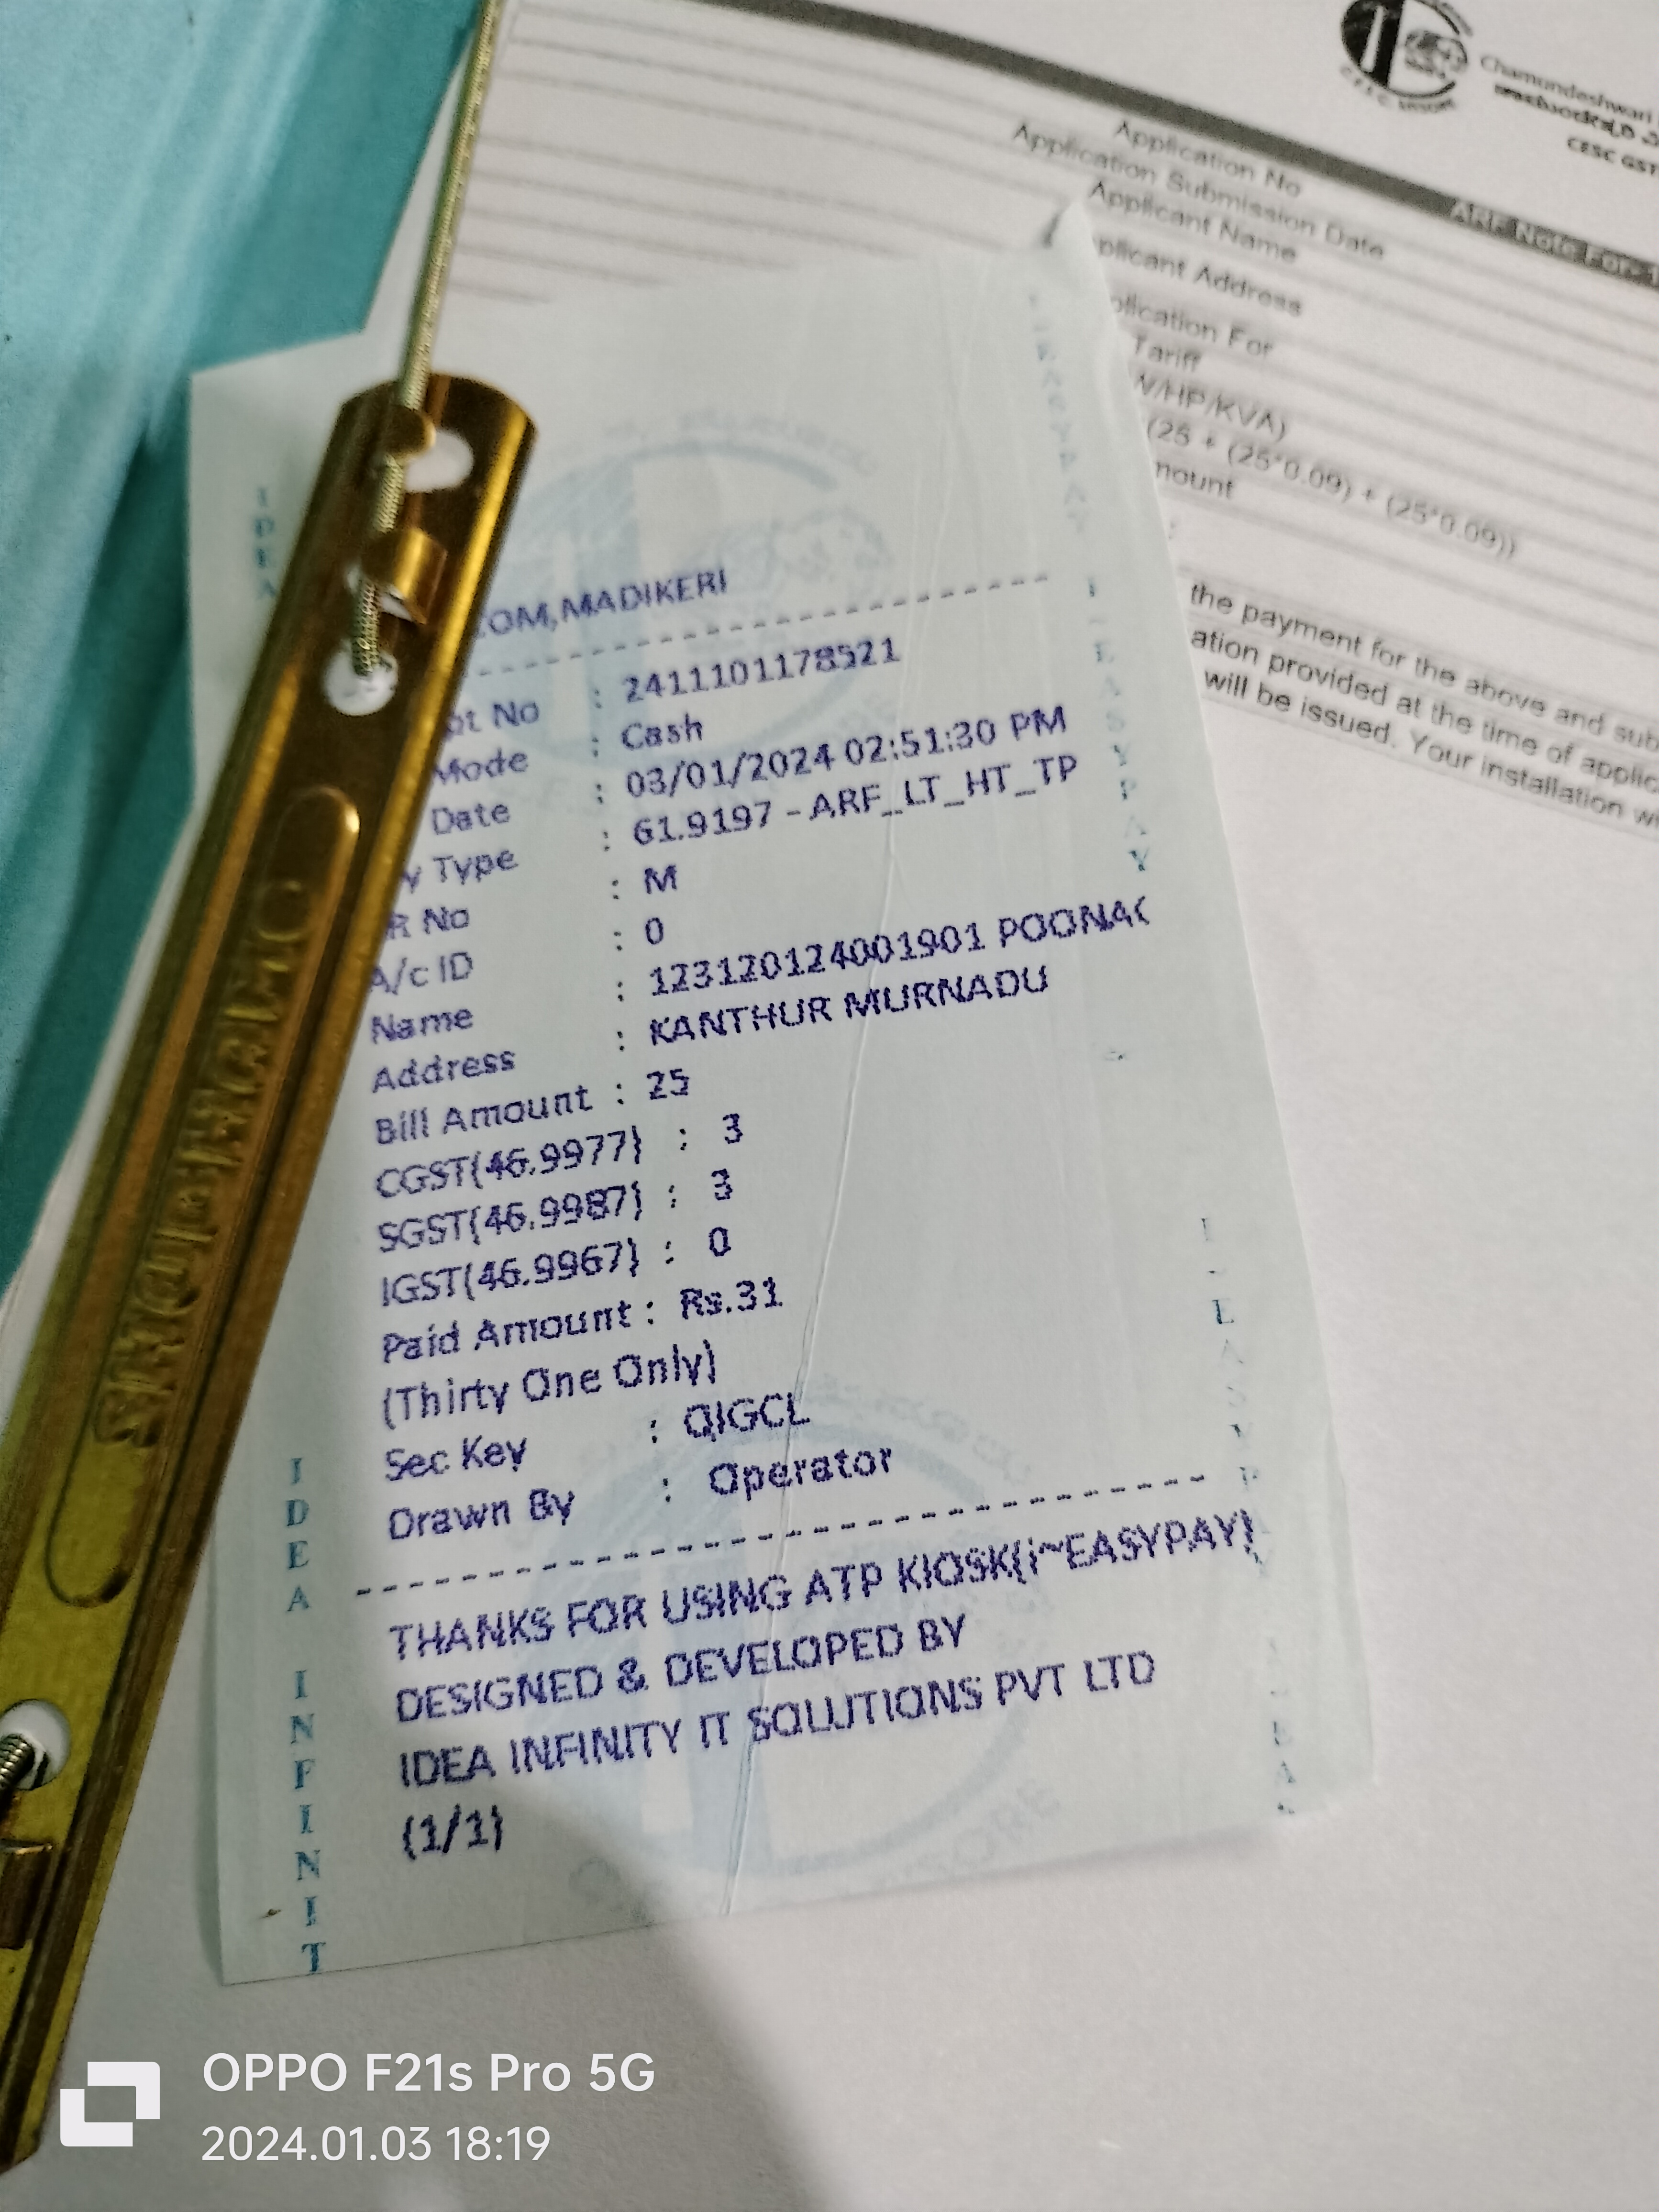 Chamundeshwari
CESC GST
ARF Note For
Application No
Application Submission Date
Applicant Name
plicant Address
plication For
Tariff
W/HP/KVA)
(25 + (25*0.09) + (25*0.09))
mount
the payment for the above and sub
ation provided at the time of applic
will be issued. Your installation wi
OM,MADIKERI
pt No : 2411101178521
Mode : Cash
Date : 03/01/2024 02:51:30 PM
y Type : 61.9197 - ARF_LT_HT_TP
R No : M
A/c ID : 0
Name : 123120124001901 POONAC
Address : KANTHUR MURNADU
Bill Amount : 25
CGST(46.9977) : 3
SGST(46.9987) : 3
IGST(46.9967) : 0
Paid Amount : Rs.31
(Thirty One Only)
Sec Key : QIGCL
Drawn By : Operator
THANKS FOR USING ATP KIOSK(i~EASYPAY)
DESIGNED & DEVELOPED BY
IDEA INFINITY IT SOLUTIONS PVT LTD
(1/1)
IDEA INFINIT
I-EASYPAY
OPPO F21s Pro 5G
2024.01.03 18:19